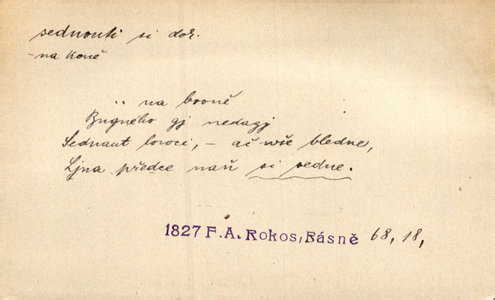 sednouti si dok.
-na koně
.. na booně
Bugného gj nedagj
Sednaut loroci, – ač wše bledne,
Ljna předce naň si sedne.
1827 F. A. Rokos, Básně 68, 18,